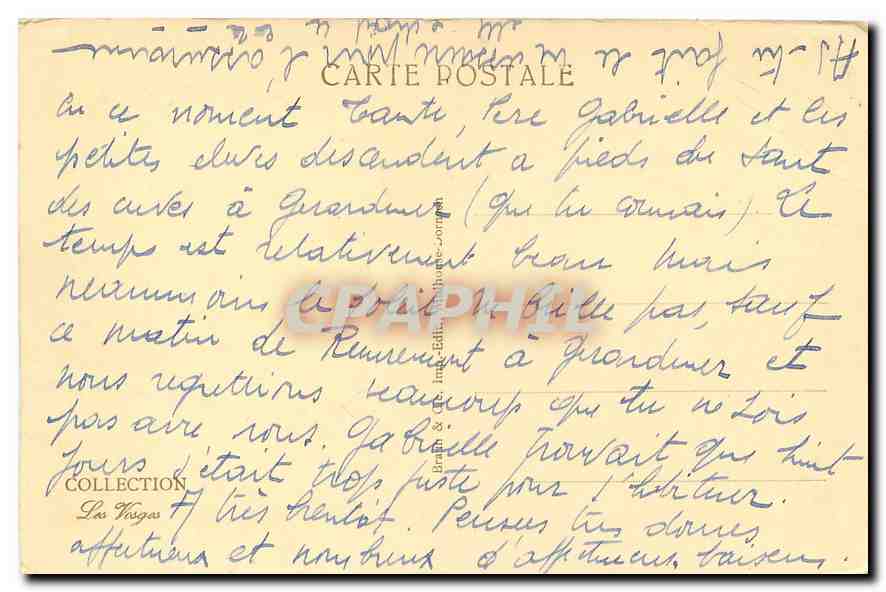 As-tu fait le
CARTE POSTALE
En ce moment Tante, Père Gabrielle et les
petites élèves descendent a pieds du saut
des cuves à Gerardmer (que tu connais) Le
temps est relativement beau mais
neanmoins le soleil ne brille pas, sauf
ce matin de Remiremont à Gerardmer et
nous regrettions beaucoup que tu ne sois
pas avec nous. Gabrielle trouvait que huit
jours c'était trop juste pour t'habituer.
COLLECTION
Les Vosges
A très bientôt. Pensées très douces
affectueux et nombreux d'affectueux baisers.
Braun & Cie, Imp.-Edit., Mulhouse-Dornach
CPAPHIL